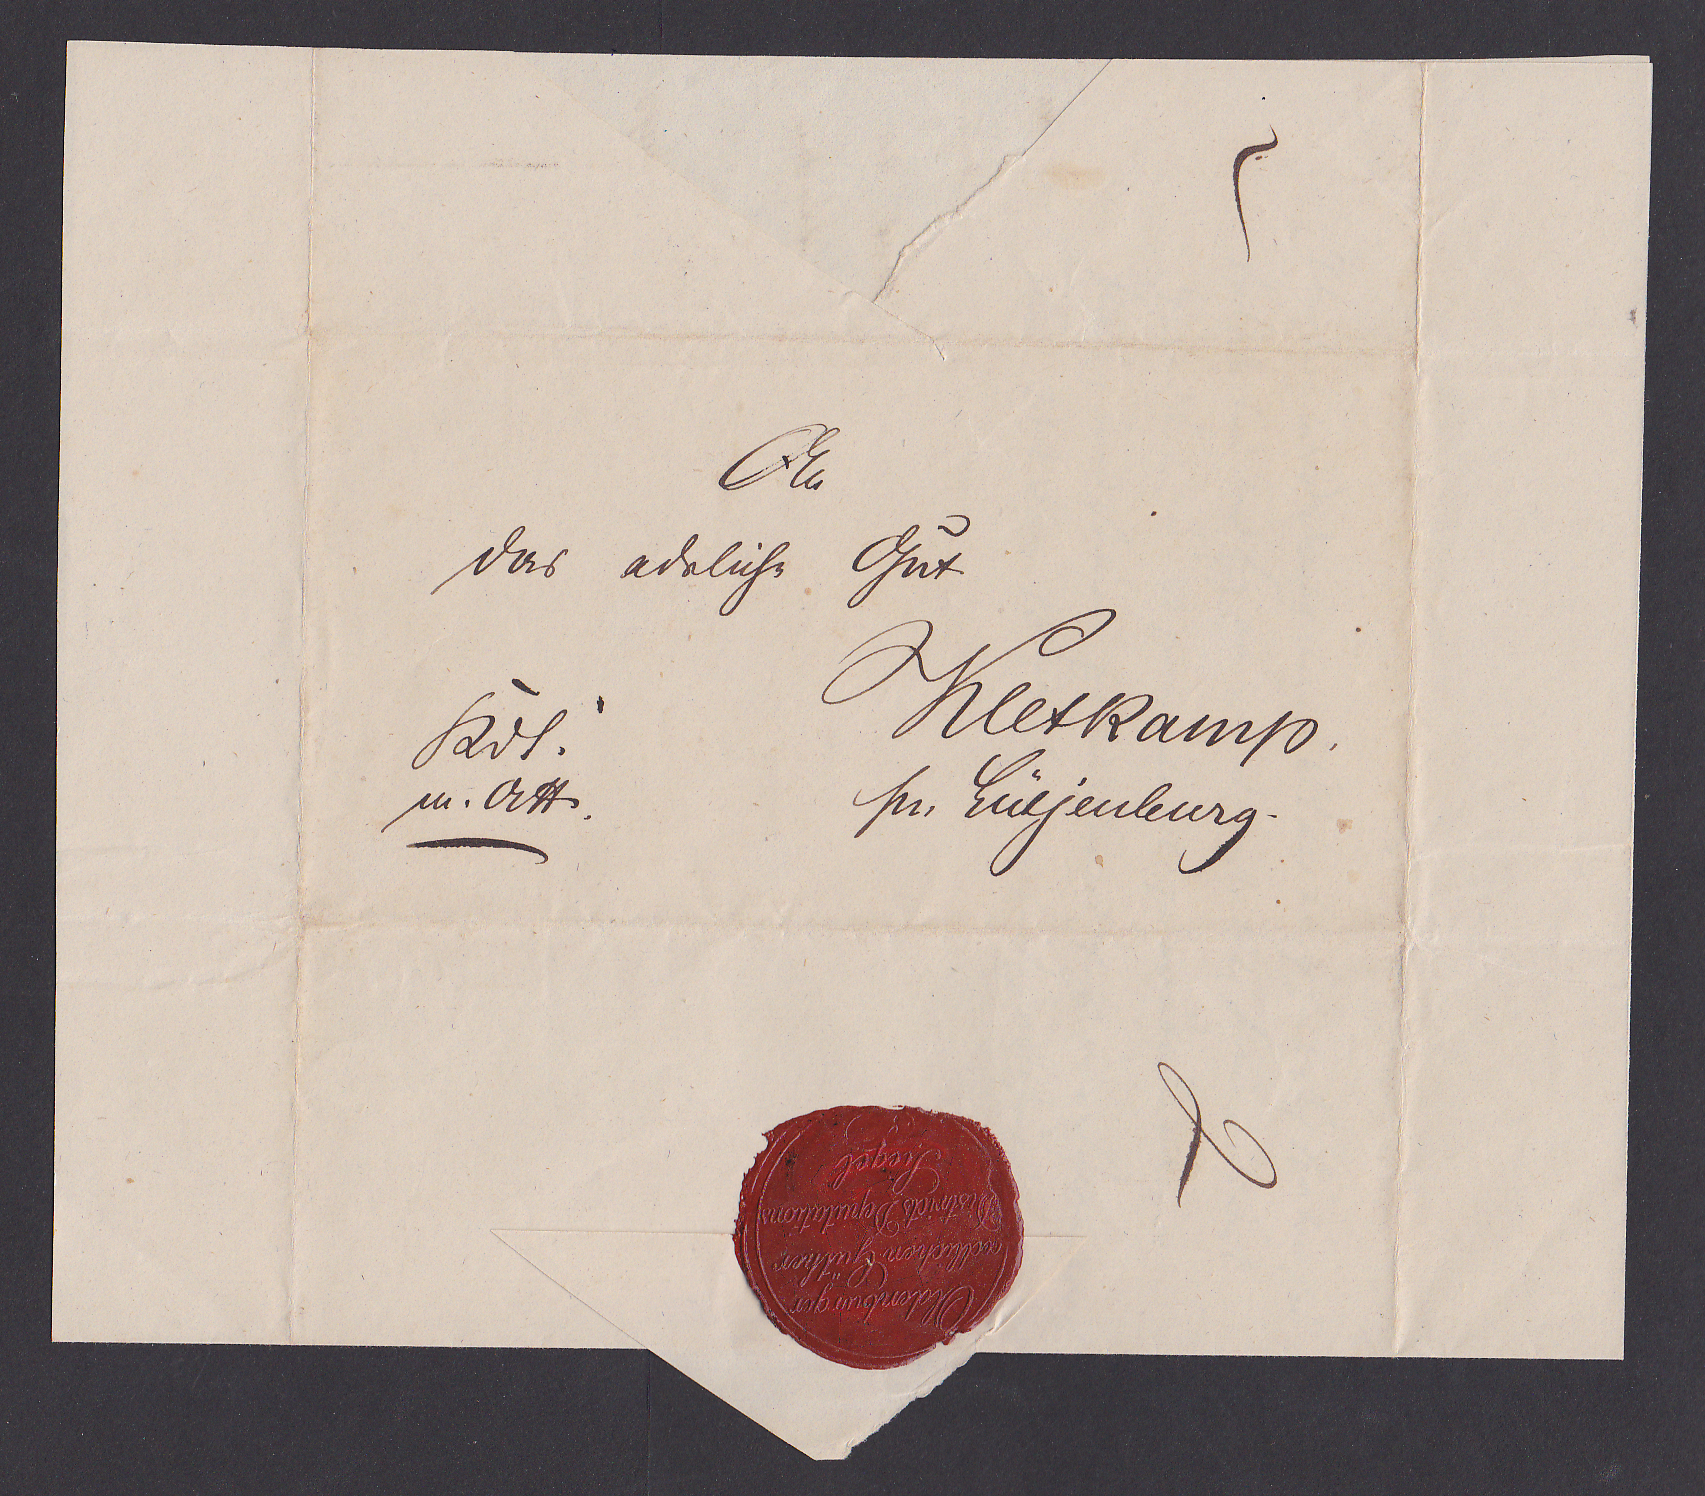 An
das adeliche Gut
Kletkamp.
pr. Lütjenburg.
Kdl.
m. Att.
Oldenburger
adlichen Güther
Districts Deputations
Siegel